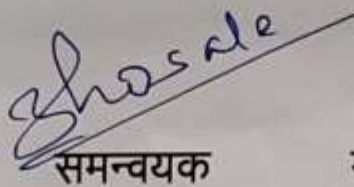 Bhosale
समन्वयक